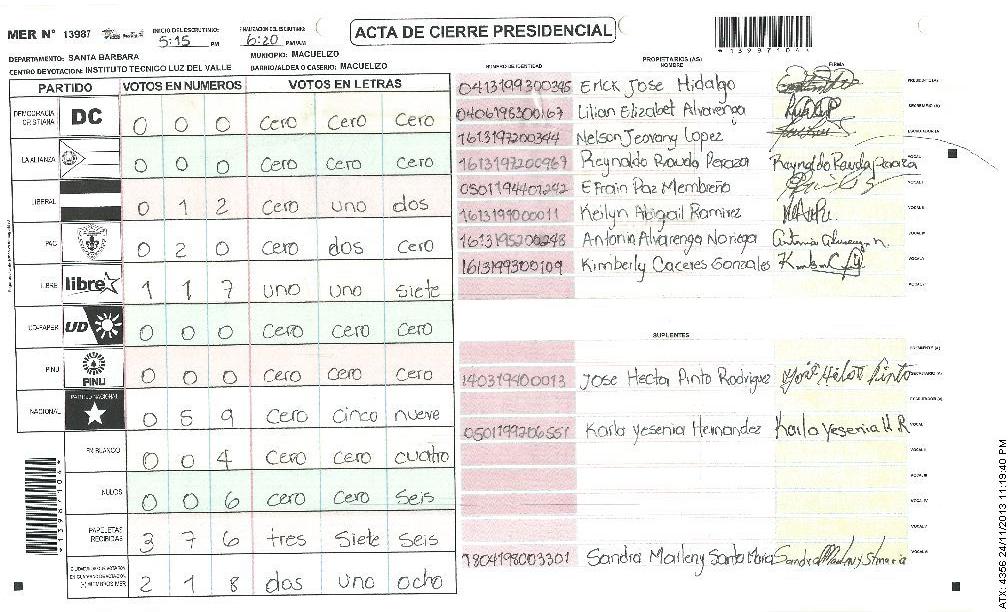 MER N° 13987
INICIO DEL ESCRUTINIO: 5:15 PM
FINALIZACION DEL ESCRUTINIO: 6:20 PM/AM
ACTA DE CIERRE PRESIDENCIAL
DEPARTAMENTO: SANTA BARBARA
MUNICIPIO: MACUELIZO
CENTRO DE VOTACION: INSTITUTO TECNICO LUZ DEL VALLE
BARRIO/ALDEA O CASERIO: MACUELIZO
PARTIDO VOTOS EN NUMEROS VOTOS EN LETRAS
DEMOCRACIA CRISTIANA DC 0 0 0 Cero Cero Cero
LA ALIANZA 0 0 0 Cero Cero Cero
LIBERAL 0 1 2 Cero uno dos
PAC 0 2 0 Cero dos Cero
LIBRE libre 1 1 7 uno uno siete
UD-FAPER UD 0 0 0 Cero Cero Cero
PINU PINU 0 0 0 Cero Cero Cero
NACIONAL PARTIDO NACIONAL 0 5 9 Cero cinco nueve
EN BLANCO 0 0 4 Cero Cero cuatro
NULOS 0 0 6 Cero Cero Seis
PAPELETAS RECIBIDAS 3 7 6 tres Siete Seis
2 1 8 dos uno ocho
NUMERO DE IDENTIDAD PROPIETARIOS (AS) NOMBRE FIRMA
0413199300345 Erick Jose Hidalgo
0406198300167 Lilian Elizabet Alvarenga
1613197200344 Nelson Jeovany Lopez
1613197200967 Reynaldo Rauda Peraza Reynaldo Rauda Peraza
0501194401242 Efrain Paz Membreño
1613199000011 Keilyn Abigail Ramirez
1613195200248 Antonia Alvarenga Noriega
1613199300109 Kimberly Caceres Gonzales
SUPLENTES
140319400013 Jose Hector Pinto Rodriguez
0501199206551 Karla Yesenia Hernandez Karla Yesenia H R
1804198003301 Sandra Marleny Santa Maria
1398/104
ATX: 4356 24/11/2013 11:19:40 PM